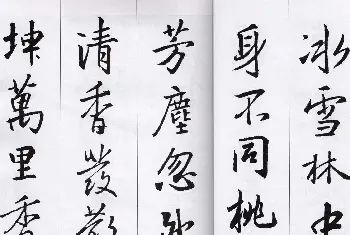 冰雪林中
身不同桃
芳塵忽
清香發散
坤萬里